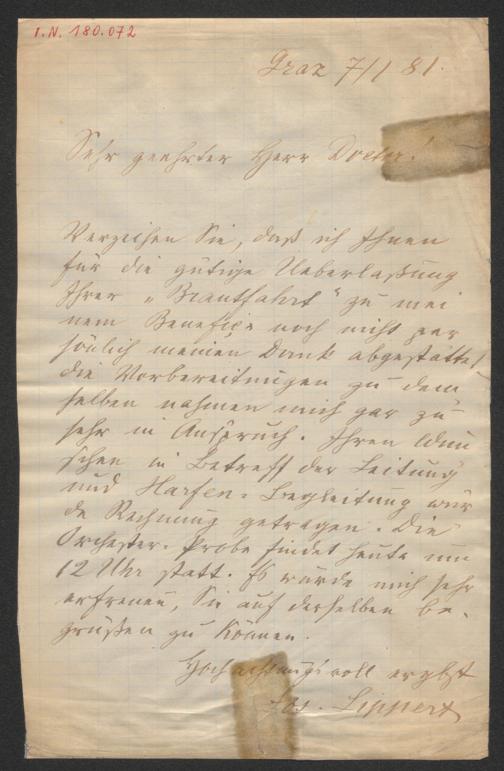 I.N. 180.072
Graz 7/1 81.
Sehr geehrter Herr Doctor!
Verzeihen Sie, daß ich Ihnen
für die gütige Ueberlaßung
Ihrer „Brautfahrt“ zu mei
nem Benefiçe noch nicht per
sönlich meinen Dank abgestattet
die Vorbereitungen zu dem
selben nahmen mich gar zu
sehr in Anspruch. Ihren Wün
schen in Betreff der Leitung
und Harfen-Begleitung wur
de Rechnung getragen. Die
Orchester-Probe findet heute um
12 Uhr statt. Es würde mich sehr
erfreuen, Sie auf derselben be-
grüßen zu können.
Hochachtungsvoll ergbst
Jos. Lippert